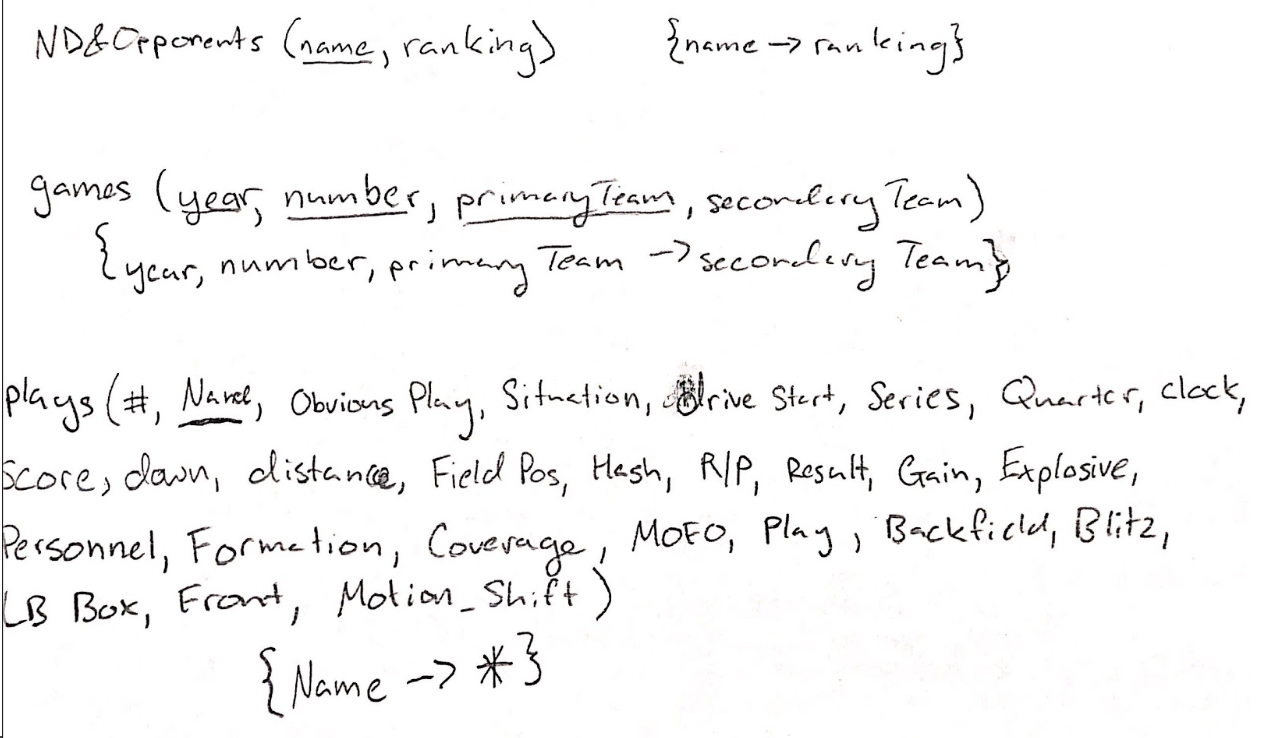 ND&Opponents (name, ranking) {name -> ranking}
games (year, number, primaryTeam, secondaryTeam)
{year, number, primary Team -> secondary Team}
plays (#, Name, Obvious Play, Situation, Drive Start, Series, Quarter, clock,
score, down, distance, Field Pos, Hash, R/P, Result, Gain, Explosive,
Personnel, Formation, Coverage, MOFO, Play, Backfield, Blitz,
LB Box, Front, Motion_Shift)
{Name -> *}